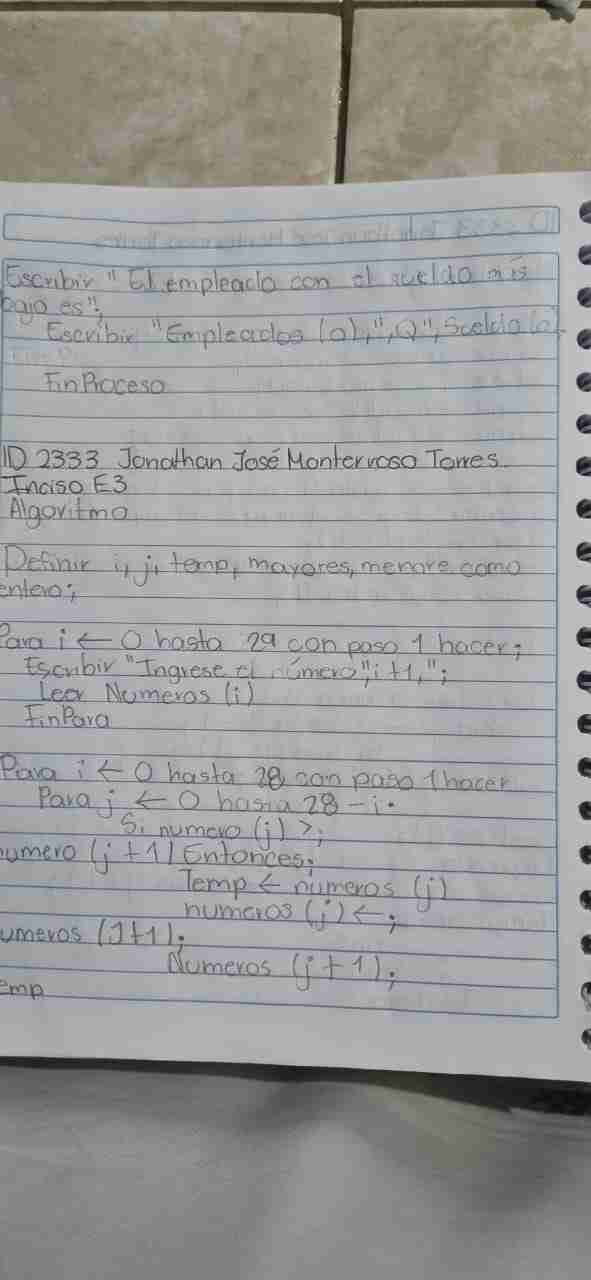 Escribir " El empleado con el sueldo más
bajo es";
Escribir "Empleados (0),",Q", Sueldo (0).
FinProceso
ID 2333 Jonathan José Monterroso Torres.
Inciso E3
Algoritmo
Definir i, j, temp, mayores, menore como
entero;
Para i ← 0 hasta 29 con paso 1 hacer;
Escribir "Ingrese el número", i+1,";
Leer Numeros (i)
FinPara
Para i ← 0 hasta 28 con paso 1 hacer
Para j ← 0 hasta 28 - i.
Si numero (j) >;
numero (j + 1) Entonces;
Temp ← numeros (j)
numeros (j) ← ;
umeros (J+1);
Numeros (j + 1);
emp